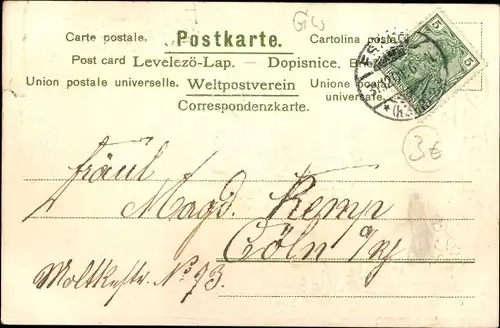 GW
Carte postale. Postkarte. Cartolina posta
Post card Levelező-Lap. — Dopisnice.
Union postale universelle. Weltpostverein Unione posta
Correspondenzkarte. universale
5 5
3€
Fräul
Magd. Kemp
Cöln a/Rh
Moltkestr. No 73.